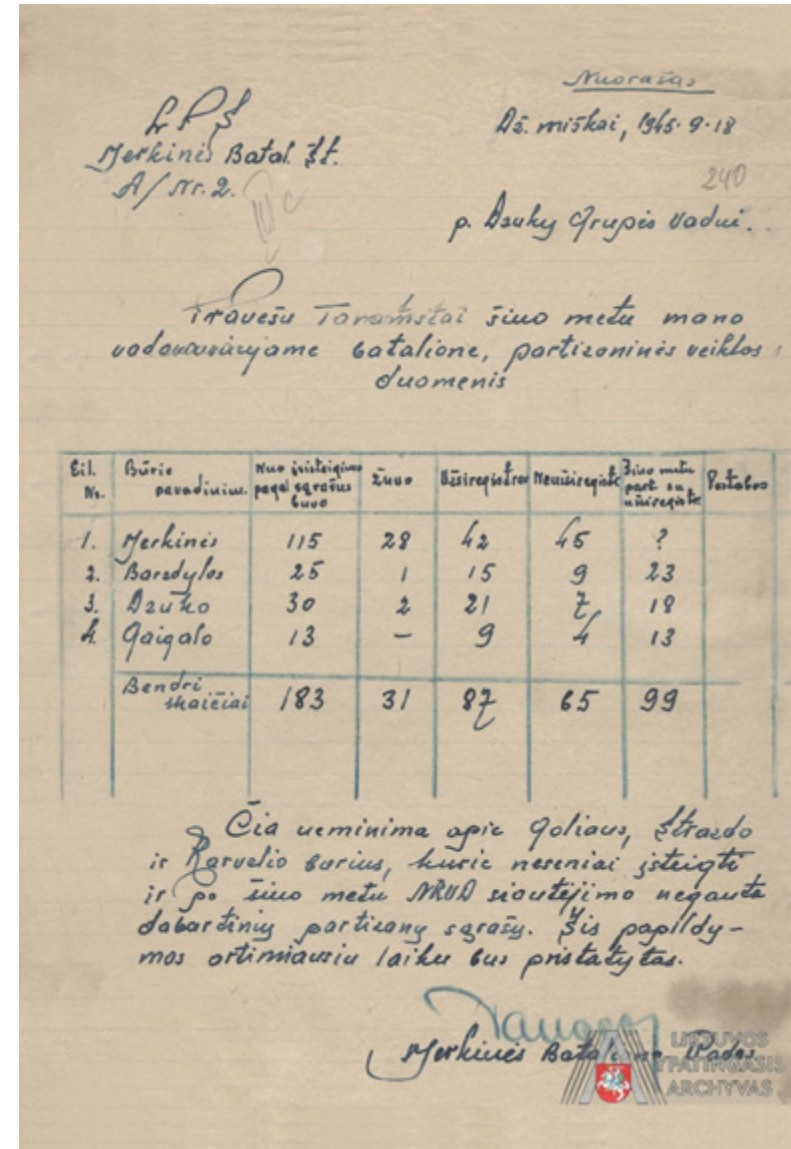 Nuorašas
L P Š
Merkinės Batal. Št.
A/Nr. 2.
Dz. miškai, 1945-9-18
240
III c
p. Dzukų Grupės Vadui.
Pranešu Tamstai šiuo metu mano
batalione, partizaninės veiklos
duomenis
Eil. Nr. | Būrio pavadinim. | Nuo įsisteigimo pagal sąrašus buvo | Žuvo | Užsiregistravo | Neužsiregistr. | Šiuo metu part. su užsiregistr. | Pastabos
1. | Merkinės | 115 | 28 | 42 | 45 | ?
2. | Barzdylos | 25 | 1 | 15 | 9 | 23
3. | Dzūko | 30 | 2 | 21 | 7 | 18
4. | Gaigalo | 13 | – | 9 | 4 | 13
Bendri skaičiai | 183 | 31 | 87 | 65 | 99
Čia neminima apie Goliaus, Strazdo
ir Karvelio būrius, kurie neseniai įsteigti
ir po šiuo metu NKVD siautėjimo negauta
dabartinių partizanų sąrašų. Šis papildy-
mas artimiausiu laiku bus pristatytas.
Merkinės Bataliono Vadas
LIETUVOS
YPATINGASIS
ARCHYVAS